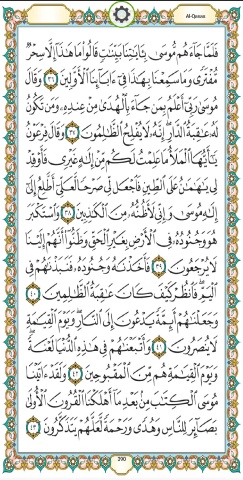 Al-Qasas
فَلَمَّا جَآءَهُم مُّوسَىٰ بِـَٔايَٰتِنَا بَيِّنَٰتٍ قَالُوا۟ مَا هَٰذَآ إِلَّا سِحْرٌ
مُّفْتَرًى وَمَا سَمِعْنَا بِهَٰذَا فِىٓ ءَابَآئِنَا ٱلْأَوَّلِينَ ٣٦ وَقَالَ
مُوسَىٰ رَبِّىٓ أَعْلَمُ بِمَن جَآءَ بِٱلْهُدَىٰ مِنْ عِندِهِۦ وَمَن تَكُونُ
لَهُۥ عَٰقِبَةُ ٱلدَّارِ إِنَّهُۥ لَا يُفْلِحُ ٱلظَّٰلِمُونَ ٣٧ وَقَالَ فِرْعَوْنُ
يَٰٓأَيُّهَا ٱلْمَلَأُ مَا عَلِمْتُ لَكُم مِّنْ إِلَٰهٍ غَيْرِى فَأَوْقِدْ
لِى يَٰهَٰمَٰنُ عَلَى ٱلطِّينِ فَٱجْعَل لِّى صَرْحًا لَّعَلِّىٓ أَطَّلِعُ إِلَىٰٓ
إِلَٰهِ مُوسَىٰ وَإِنِّى لَأَظُنُّهُۥ مِنَ ٱلْكَٰذِبِينَ ٣٨ وَٱسْتَكْبَرَ
هُوَ وَجُنُودُهُۥ فِى ٱلْأَرْضِ بِغَيْرِ ٱلْحَقِّ وَظَنُّوٓا۟ أَنَّهُمْ إِلَيْنَا
لَا يُرْجَعُونَ ٣٩ فَأَخَذْنَٰهُ وَجُنُودَهُۥ فَنَبَذْنَٰهُمْ فِى
ٱلْيَمِّ فَٱنظُرْ كَيْفَ كَانَ عَٰقِبَةُ ٱلظَّٰلِمِينَ ٤٠
وَجَعَلْنَٰهُمْ أَئِمَّةً يَدْعُونَ إِلَى ٱلنَّارِ وَيَوْمَ ٱلْقِيَٰمَةِ
لَا يُنصَرُونَ ٤١ وَأَتْبَعْنَٰهُمْ فِى هَٰذِهِ ٱلدُّنْيَا لَعْنَةً
وَيَوْمَ ٱلْقِيَٰمَةِ هُم مِّنَ ٱلْمَقْبُوحِينَ ٤٢ وَلَقَدْ ءَاتَيْنَا
مُوسَى ٱلْكِتَٰبَ مِنۢ بَعْدِ مَآ أَهْلَكْنَا ٱلْقُرُونَ ٱلْأُولَىٰ
بَصَآئِرَ لِلنَّاسِ وَهُدًى وَرَحْمَةً لَّعَلَّهُمْ يَتَذَكَّرُونَ ٤٣
390